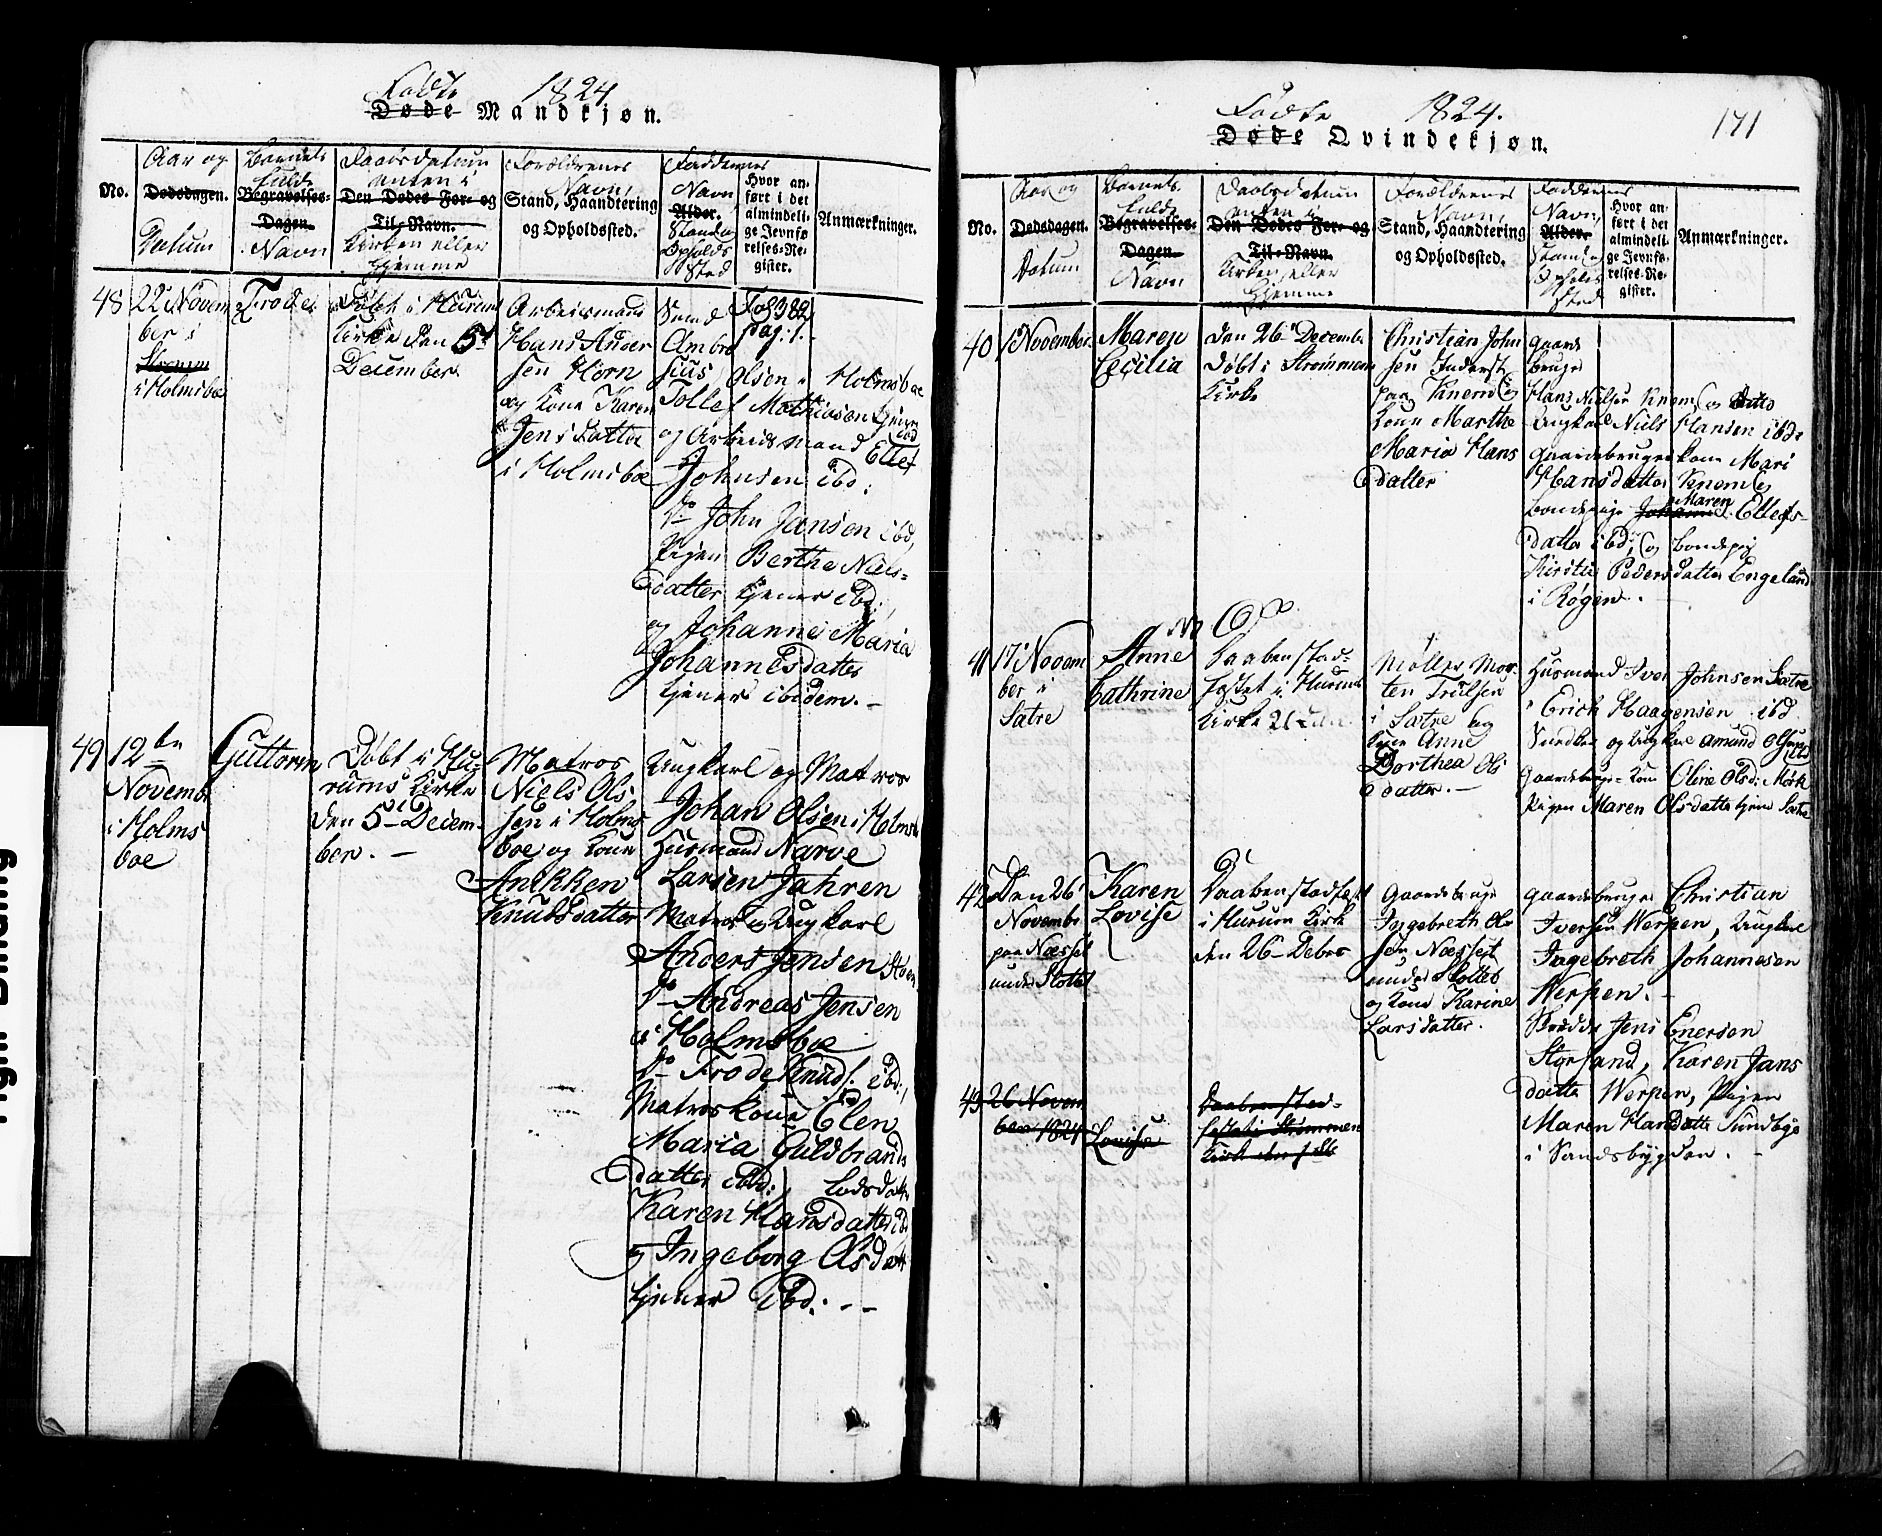 Fødte 1824
Døde Mandkjøn.
No.
Aar og
Dødsdagen.
Datum
Barnets
fulde
Begravelses-
Dagen.
Navn
Daabsdatum
enten i
Den Dødes For- og
Til-Navn.
Kirken eller
Hjemme
Forældrenes
Navn,
Stand, Haandtering
og Opholdssted.
Faddernes
Navn,
Alder.
Stand og
Opholds
Sted
Hvor an-
ført i det
almindeli-
ge Jevnfø-
relses-Re-
gister.
Anmærkninger.
48
22 Novem
ber i
i Holmsboe
Frode
Døbt i Hurums
Kirke den 5t
December.
Arbeidsmand
Hans Ander
sen Horn
og Kone Karen
Jensdatter
i Holmsboe
Fol 382
pag: 1.
Ambro
sius Olsen Holmsboe
Tollef Mathiasen tjener
ibd
og Arbeidsmand Ellef
Johnsen ibd:
Do John Jansen ibd,
Pigen Berthe Niels-
datter tjener ibd:,
og Johanne Maria
Johannesdatter
tjener ibidem. -
49
12te
Novembr
i Holms
boe
Guttorm
Døbt i Hu-
rums Kirke
den 5t Decem-
ber. -
Matros
Niels Ols
sen i Holms
boe og Kone
Anikken
Knudsdatter
Ungkarl og Matros
Johan Olsen i Holmsb
Husmand Narve
Larsen Jahren
Matros Ungkarl
Anders Jensen
Do Andreas Jensen
i Holmsboe
Do Frode Knuds: ibd:,
Matroskone Elen
Maria Guldbrands
datter ibd:, Lodsdatter
Karen Hansdatter ibd
og Ingeborg Olsdatt
tjener ibd: - -
Fødte 1824.
Døde Qvindekjøn.
171
No.
Aar og
Dødsdagen
Datum
Barnets
fulde
Begravelses-
Dagen.
Navn
Daabsdatum
enten i
Den Dødes For- og
Til-Navn.
Kirken, eller
Hjemme
Forældrenes
Navn,
Stand, Haandtering
og Opholdssted.
Faddernes
Navn,
Alder.
Stand og
Opholds
Sted
Hvor an-
ført i det
almindeli-
ge Jevnfø-
relses-Re-
gister.
Anmærkninger.
40
1 November
Maren
Cecilia
den 26 December
døbt i Strømmen
Kirke
Christian John
sen Inderst
paa Knem og
Kone Marthe
Maria Hans
datter
Gaard
bruger
Hans Nielsen Knem, og
Ungkarl Niels Hansen ibd:
Gaardbruger kone Mari
Hansdatter Knem og
Maren
Bondepige Johanne Ellefs-
datter ibd:, og Bondepig
Kirstie Pedersdatter Engelund
i Røgen. -
41
17 Novem
ber i
Sætre
Anne
Cathrine
Daaben stad-
fæstet i Hurums
Kirke
Møller Mor
ten Trulsen
i Sætre og
Kone Anne
Dorthea Ols
datter. -
Husmand Iver Johnsen Sætre
Erich Haagensen ibd.
og Ungkarl Amund Olsen
Gaardbruger-Kone Oline Olsd: Mørk
Pigen Maren Olsdatter tjener Sætre
42
Den 26
Novembr
paa Næsset
under Slottet
Karen
Lovise
Daaben stadfæst
i Hurum Kirk
den 26 Debr
Gaardbruger
Ingebreth Ol-
sen Næsset
under Slottet
og Kone Karine
Larsdatter.
Gaardbruger Christian
Iversen Werpen, Ungkarl
Ingebreth Johannesen
Werpen. -
Skrædder Jens Enersen
Storsand, Karen Jans
datter Werpen, Pigen
Maren Hansdatter Sundbye
i Sandsbygden. -
43
26 Novem
ber 1824
Lovise
Daaben stad-
fæstet i Strømmen
Kirk den